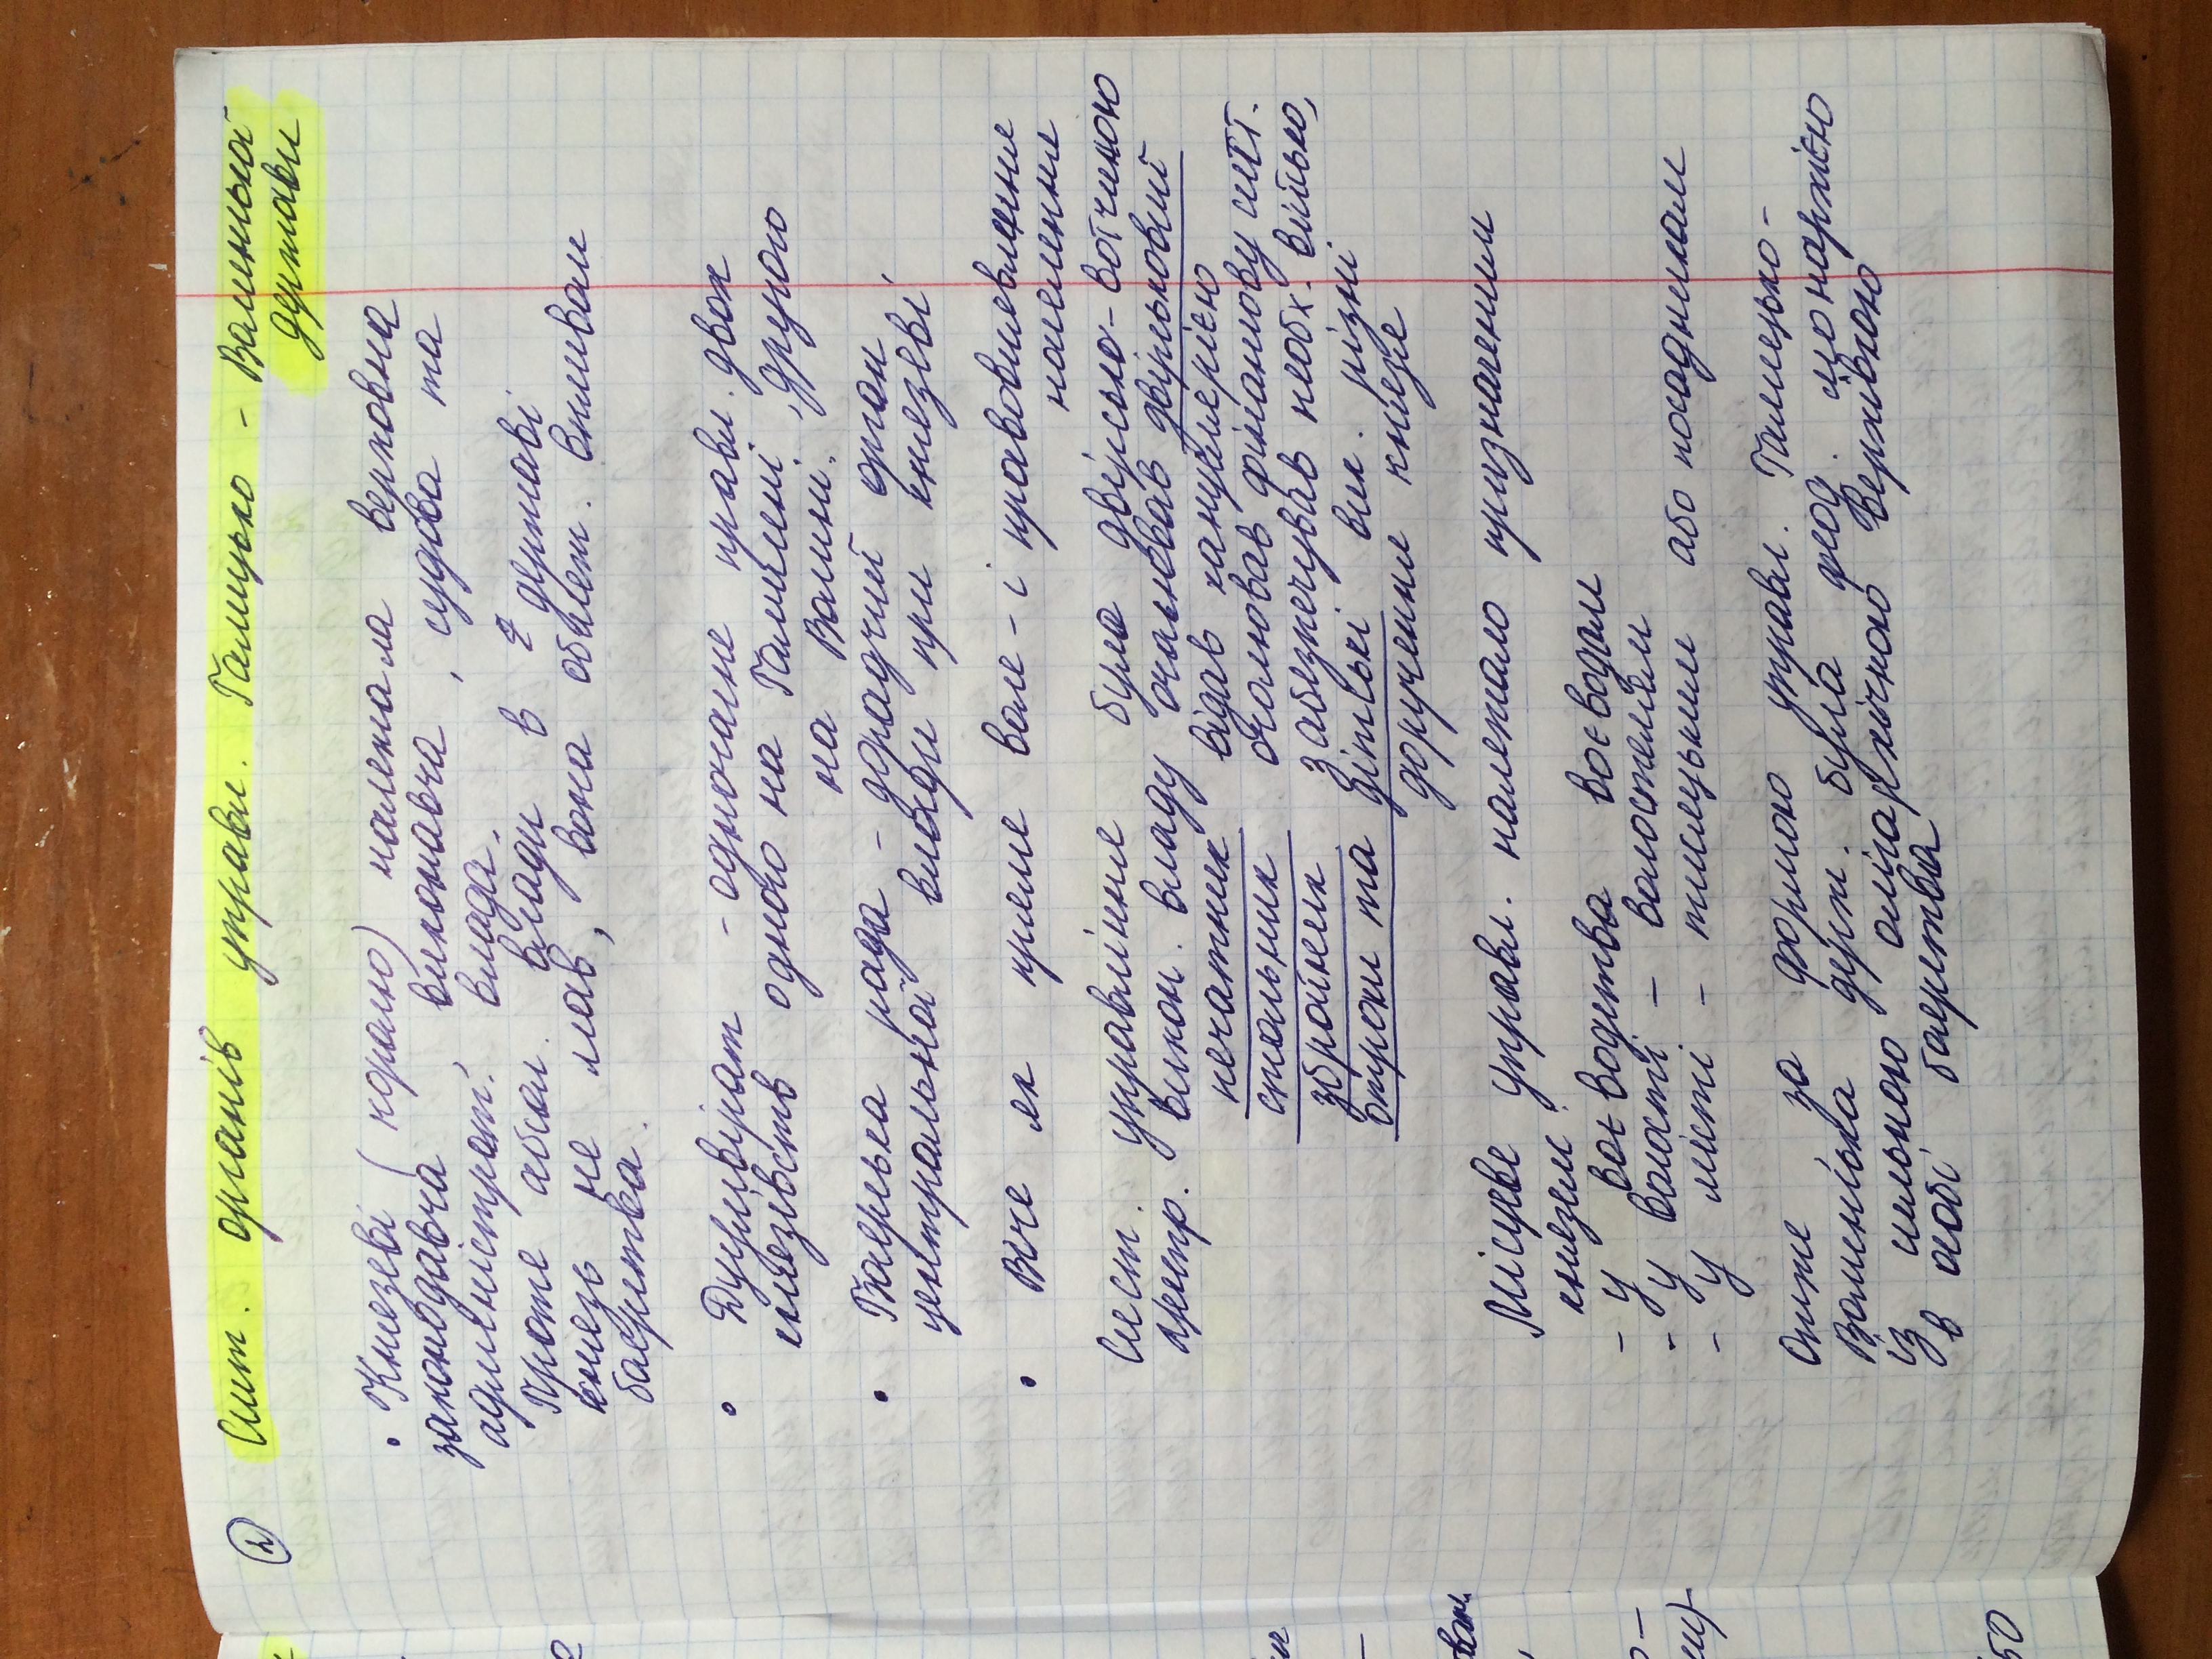 ② Сист. органів управл. Галицько - Волинської
держави
• Князеві (королю) належала верховна
законодавча, виконавча, судова та
адміністрат. влада.
Проте абсол. влади в державі
князь не мав, вона обмеж. впливом
боярства.
• Дуумвірат - одночасне правл. двох
князівств одного на Галичині, другого
на Волині.
• Боярська рада - дорадчий орган
центральної влади при князеві
• Віче як пряме воле - і правовиявлення
населення
Сист. управління була двірсько-вотчиною
Центр. викон. владу очолював двірський
печатник відав канцелярією
стольник очолював фінансову сист.
збройник забезпечував необх. військо,
отроки та дітські вик. різні
доручення князя
Місцеве управл. належало призначеним
князем:
- у воєводства воєводам
- у волості - волостелям
- у місті - тисяцьким або посадникам
Отже, за формою управл. Галицько-
Волинська держ. була феод. монархією
із сильною олігархічною верхівкою
в особі боярства
50